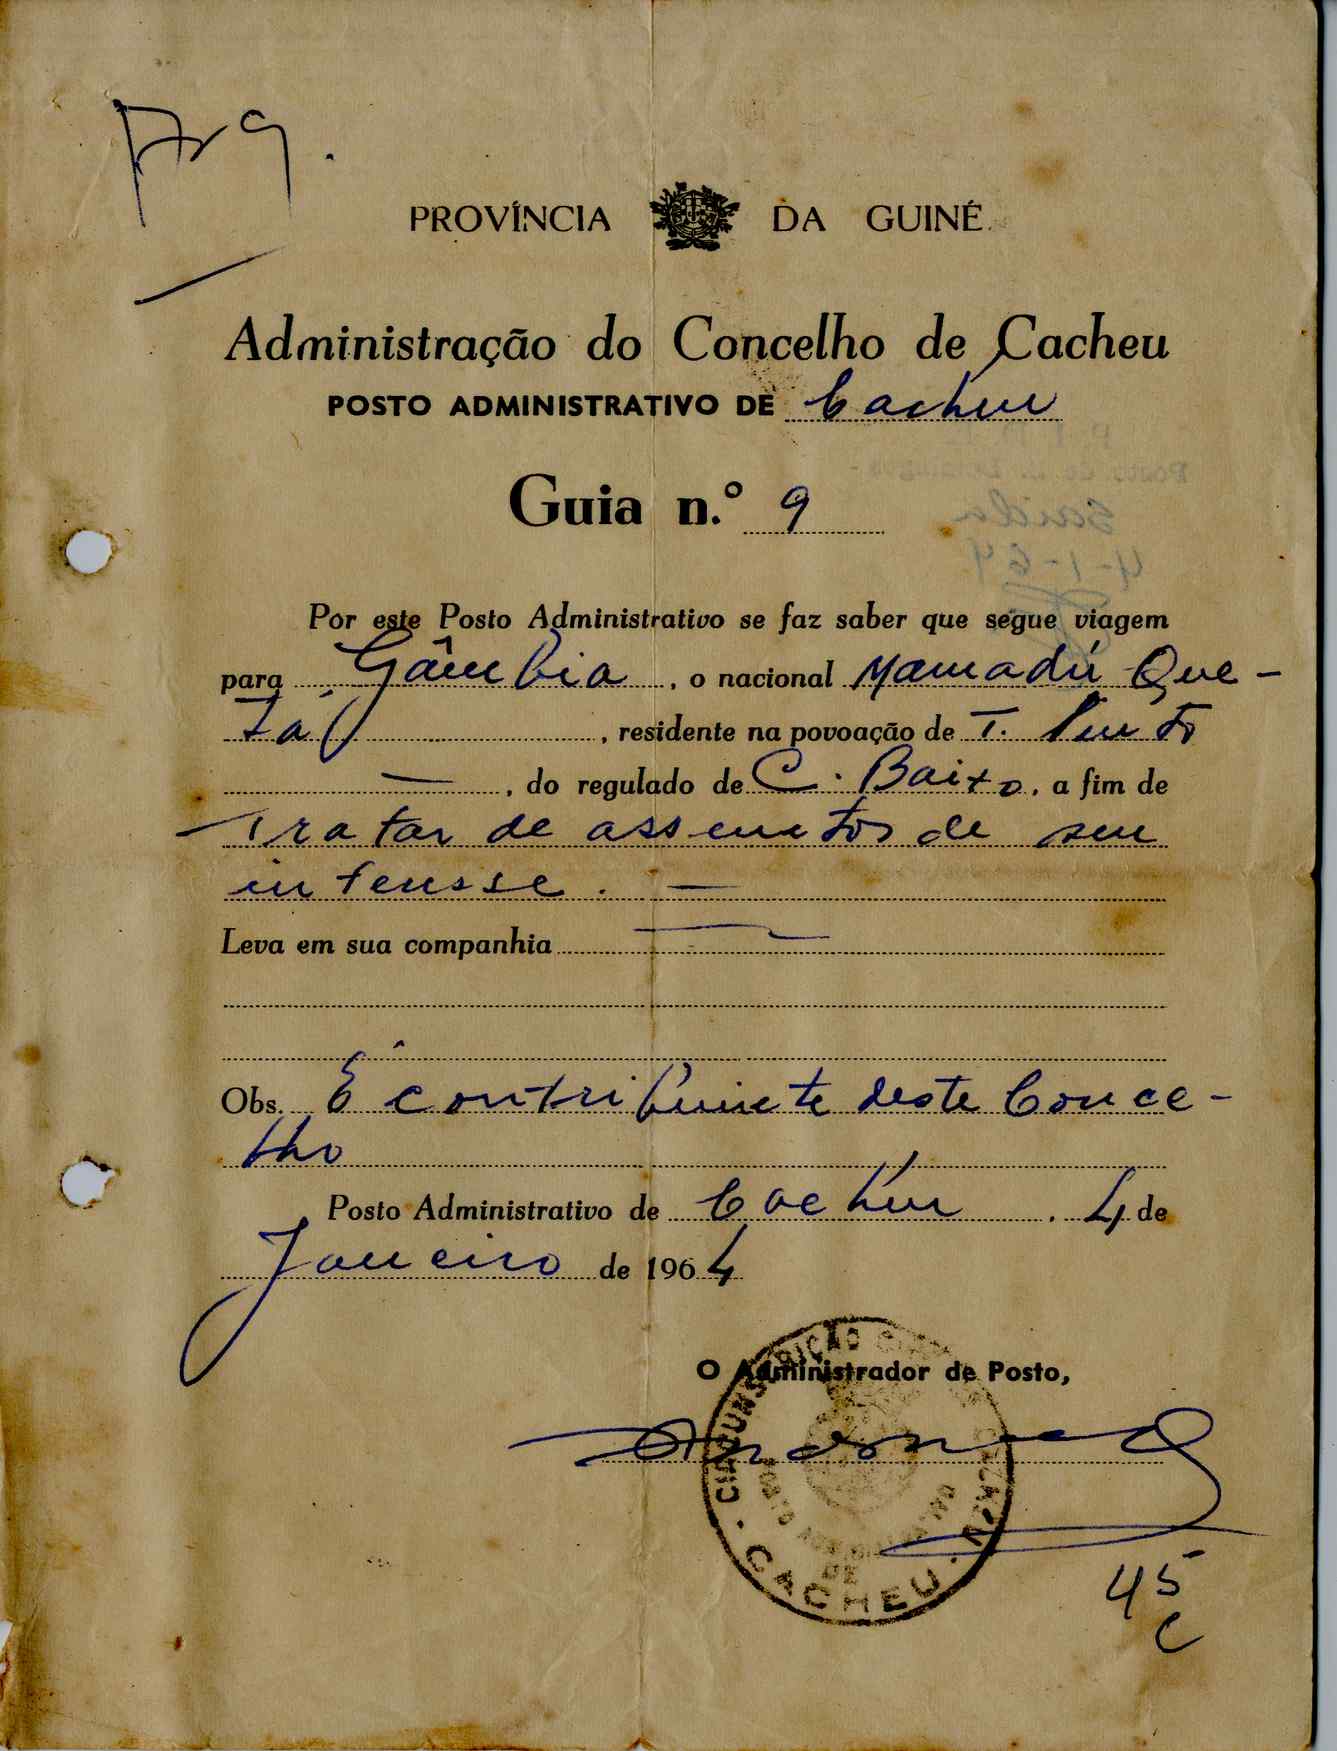 Arq.
PROVÍNCIA DA GUINÉ
Administração do Concelho de Cacheu
POSTO ADMINISTRATIVO DE Cacheu
Guia n.º 9
Saida
4-1-64
Por este Posto Administrativo se faz saber que segue viagem
para Gâmbia, o nacional Mamadú Que-
tá, residente na povoação de T. Pinto
—, do regulado de C. Baixo, a fim de
Tratar de assuntos de seu
interesse. —
Leva em sua companhia —
Obs. É contribuinte deste Conce-
lho
Posto Administrativo de Cacheu, 4 de
Janeiro de 1964
O Administrador de Posto,
CIRCUNSCRIÇÃO
POSTO ADMINISTRATIVO
DE
CACHEU
45
C